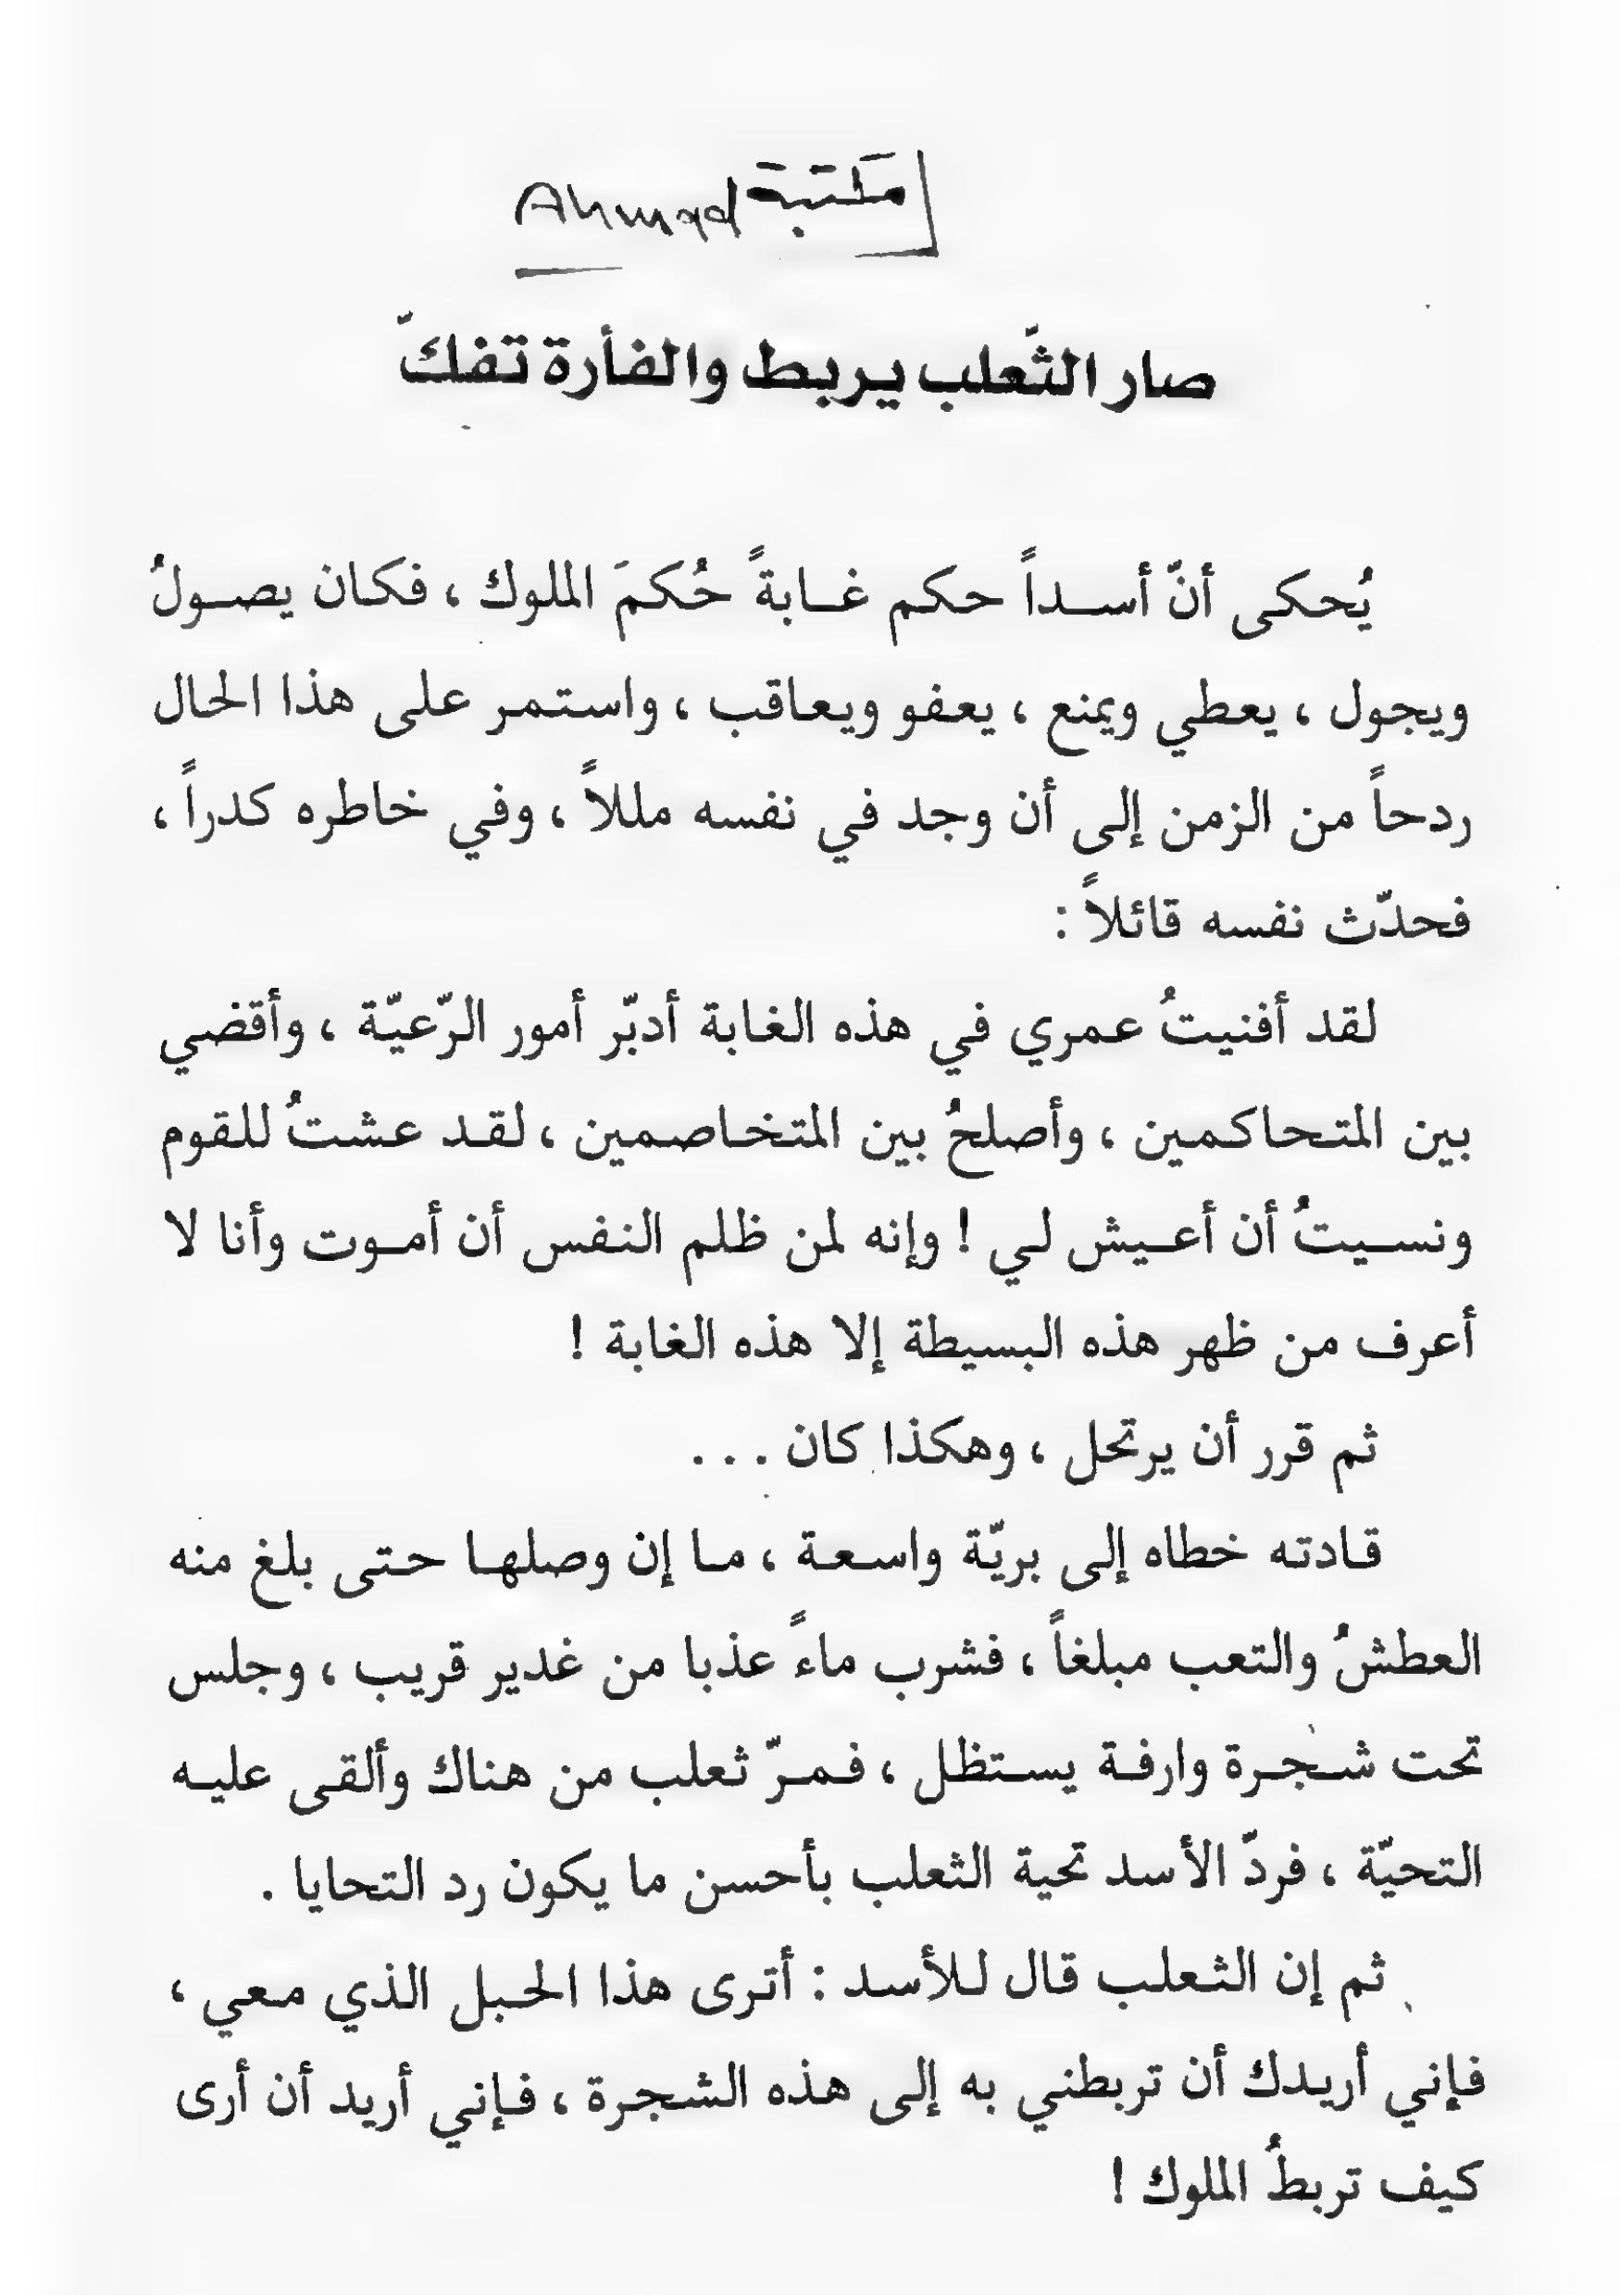 مكتبة Ahmad
صار الثّعلب يربط والفأرة تفكّ
يُحكى أنّ أسداً حكم غابةً حُكمَ الملوك ، فكان يصولُ
ويجول ، يعطي ويمنع ، يعفو ويعاقب ، واستمر على هذا الحال
ردحاً من الزمن إلى أن وجد في نفسه مللاً ، وفي خاطره كدراً ،
فحدّث نفسه قائلاً :
لقد أفنيتُ عمري في هذه الغابة أدبّر أمور الرّعيّة ، وأقضي
بين المتحاكمين ، وأصلحُ بين المتخاصمين ، لقد عشتُ للقوم
ونسيتُ أن أعيش لي ! وإنه لمن ظلم النفس أن أموت وأنا لا
أعرف من ظهر هذه البسيطة إلا هذه الغابة !
ثم قرر أن يرتحل ، وهكذا كان . . .
قادته خطاه إلى بريّة واسعة ، ما إن وصلها حتى بلغ منه
العطشُ والتعب مبلغاً ، فشرب ماءً عذبا من غدير قريب ، وجلس
تحت شجرة وارفة يستظل ، فمرّ ثعلب من هناك وألقى عليه
التحيّة ، فردّ الأسد تحية الثعلب بأحسن ما يكون رد التحايا .
ثم إن الثعلب قال للأسد : أترى هذا الحبل الذي معي ،
فإني أريدك أن تربطني به إلى هذه الشجرة ، فإني أريد أن أرى
كيف تربطُ الملوك !